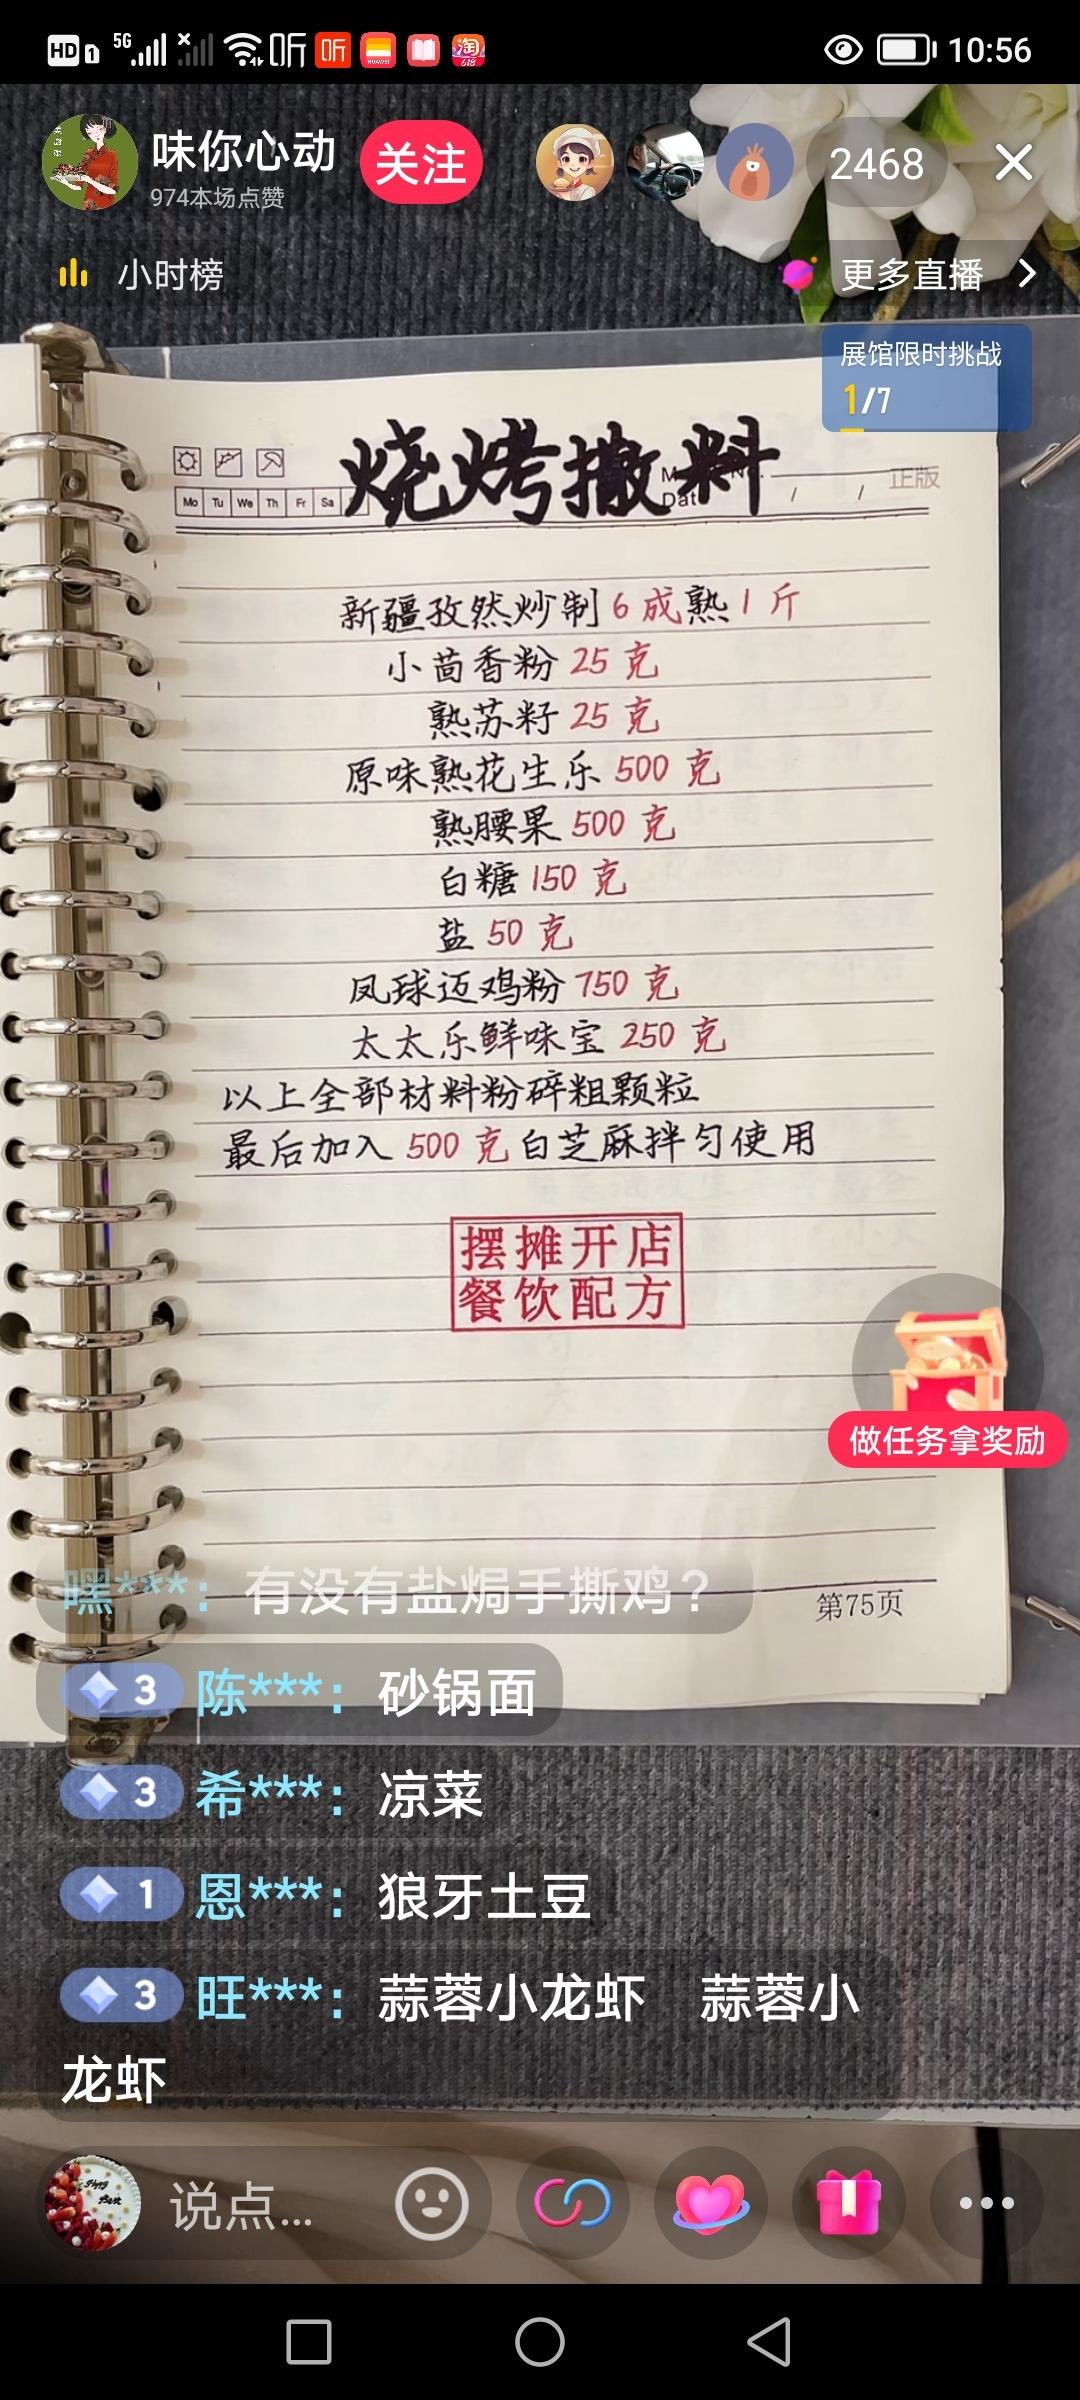 HD 1 5G 听 听 HUAWEI 淘 618 10:56
味你心动 关注 2468
974本场点赞
小时榜 更多直播
展馆限时挑战
1/7
烧烤撒料
正版
Mo Tu We Th Fr Sa Dat / /
新疆孜然炒制6成熟1斤
小茴香粉25克
熟苏籽25克
原味熟花生乐500克
熟腰果500克
白糖150克
盐50克
凤球迈鸡粉750克
太太乐鲜味宝250克
以上全部材料粉碎粗颗粒
最后加入500克白芝麻拌匀使用
摆摊开店
餐饮配方
做任务拿奖励
第75页
嘿***：有没有盐焗手撕鸡？
3 陈***：砂锅面
3 希***：凉菜
1 恩***：狼牙土豆
3 旺***：蒜蓉小龙虾 蒜蓉小
龙虾
说点...